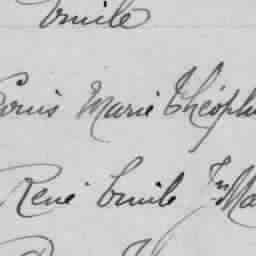 Emile
Louis Marie Théophi
René Emile Fn Ma